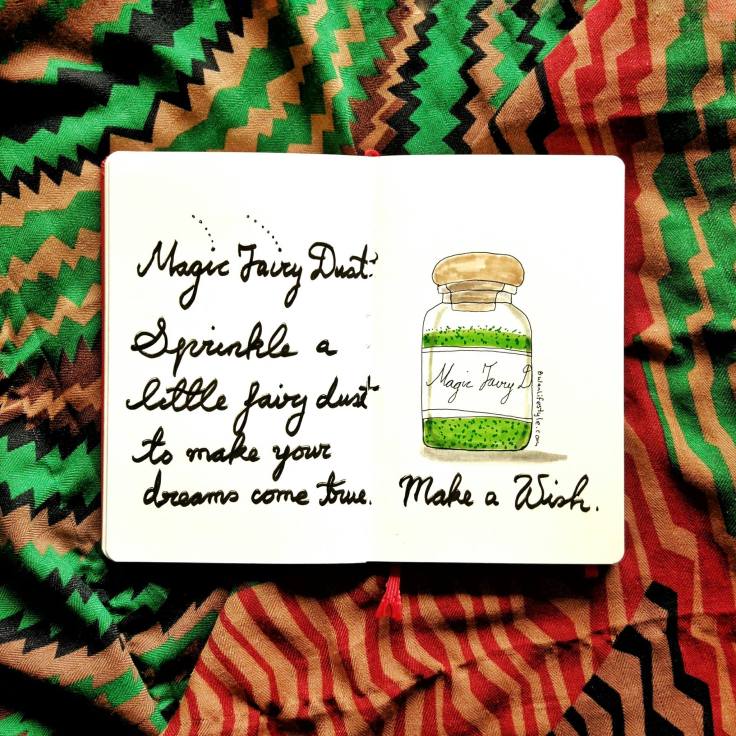 Magic Fairy Dust:
Sprinkle a
little fairy dust
to make your
dreams come true.
Magic Fairy D
Make a Wish.